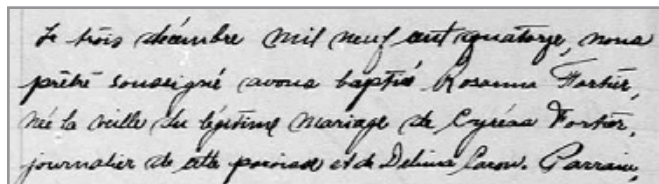 Le trois décembre mil neuf cent quatorze, nous
prêtre soussigné avons baptisé Rosanna Fortier,
née la veille du légitime mariage de Cyréas Fortier,
journalier de cette paroisse et de Delima Caron. Parrain,